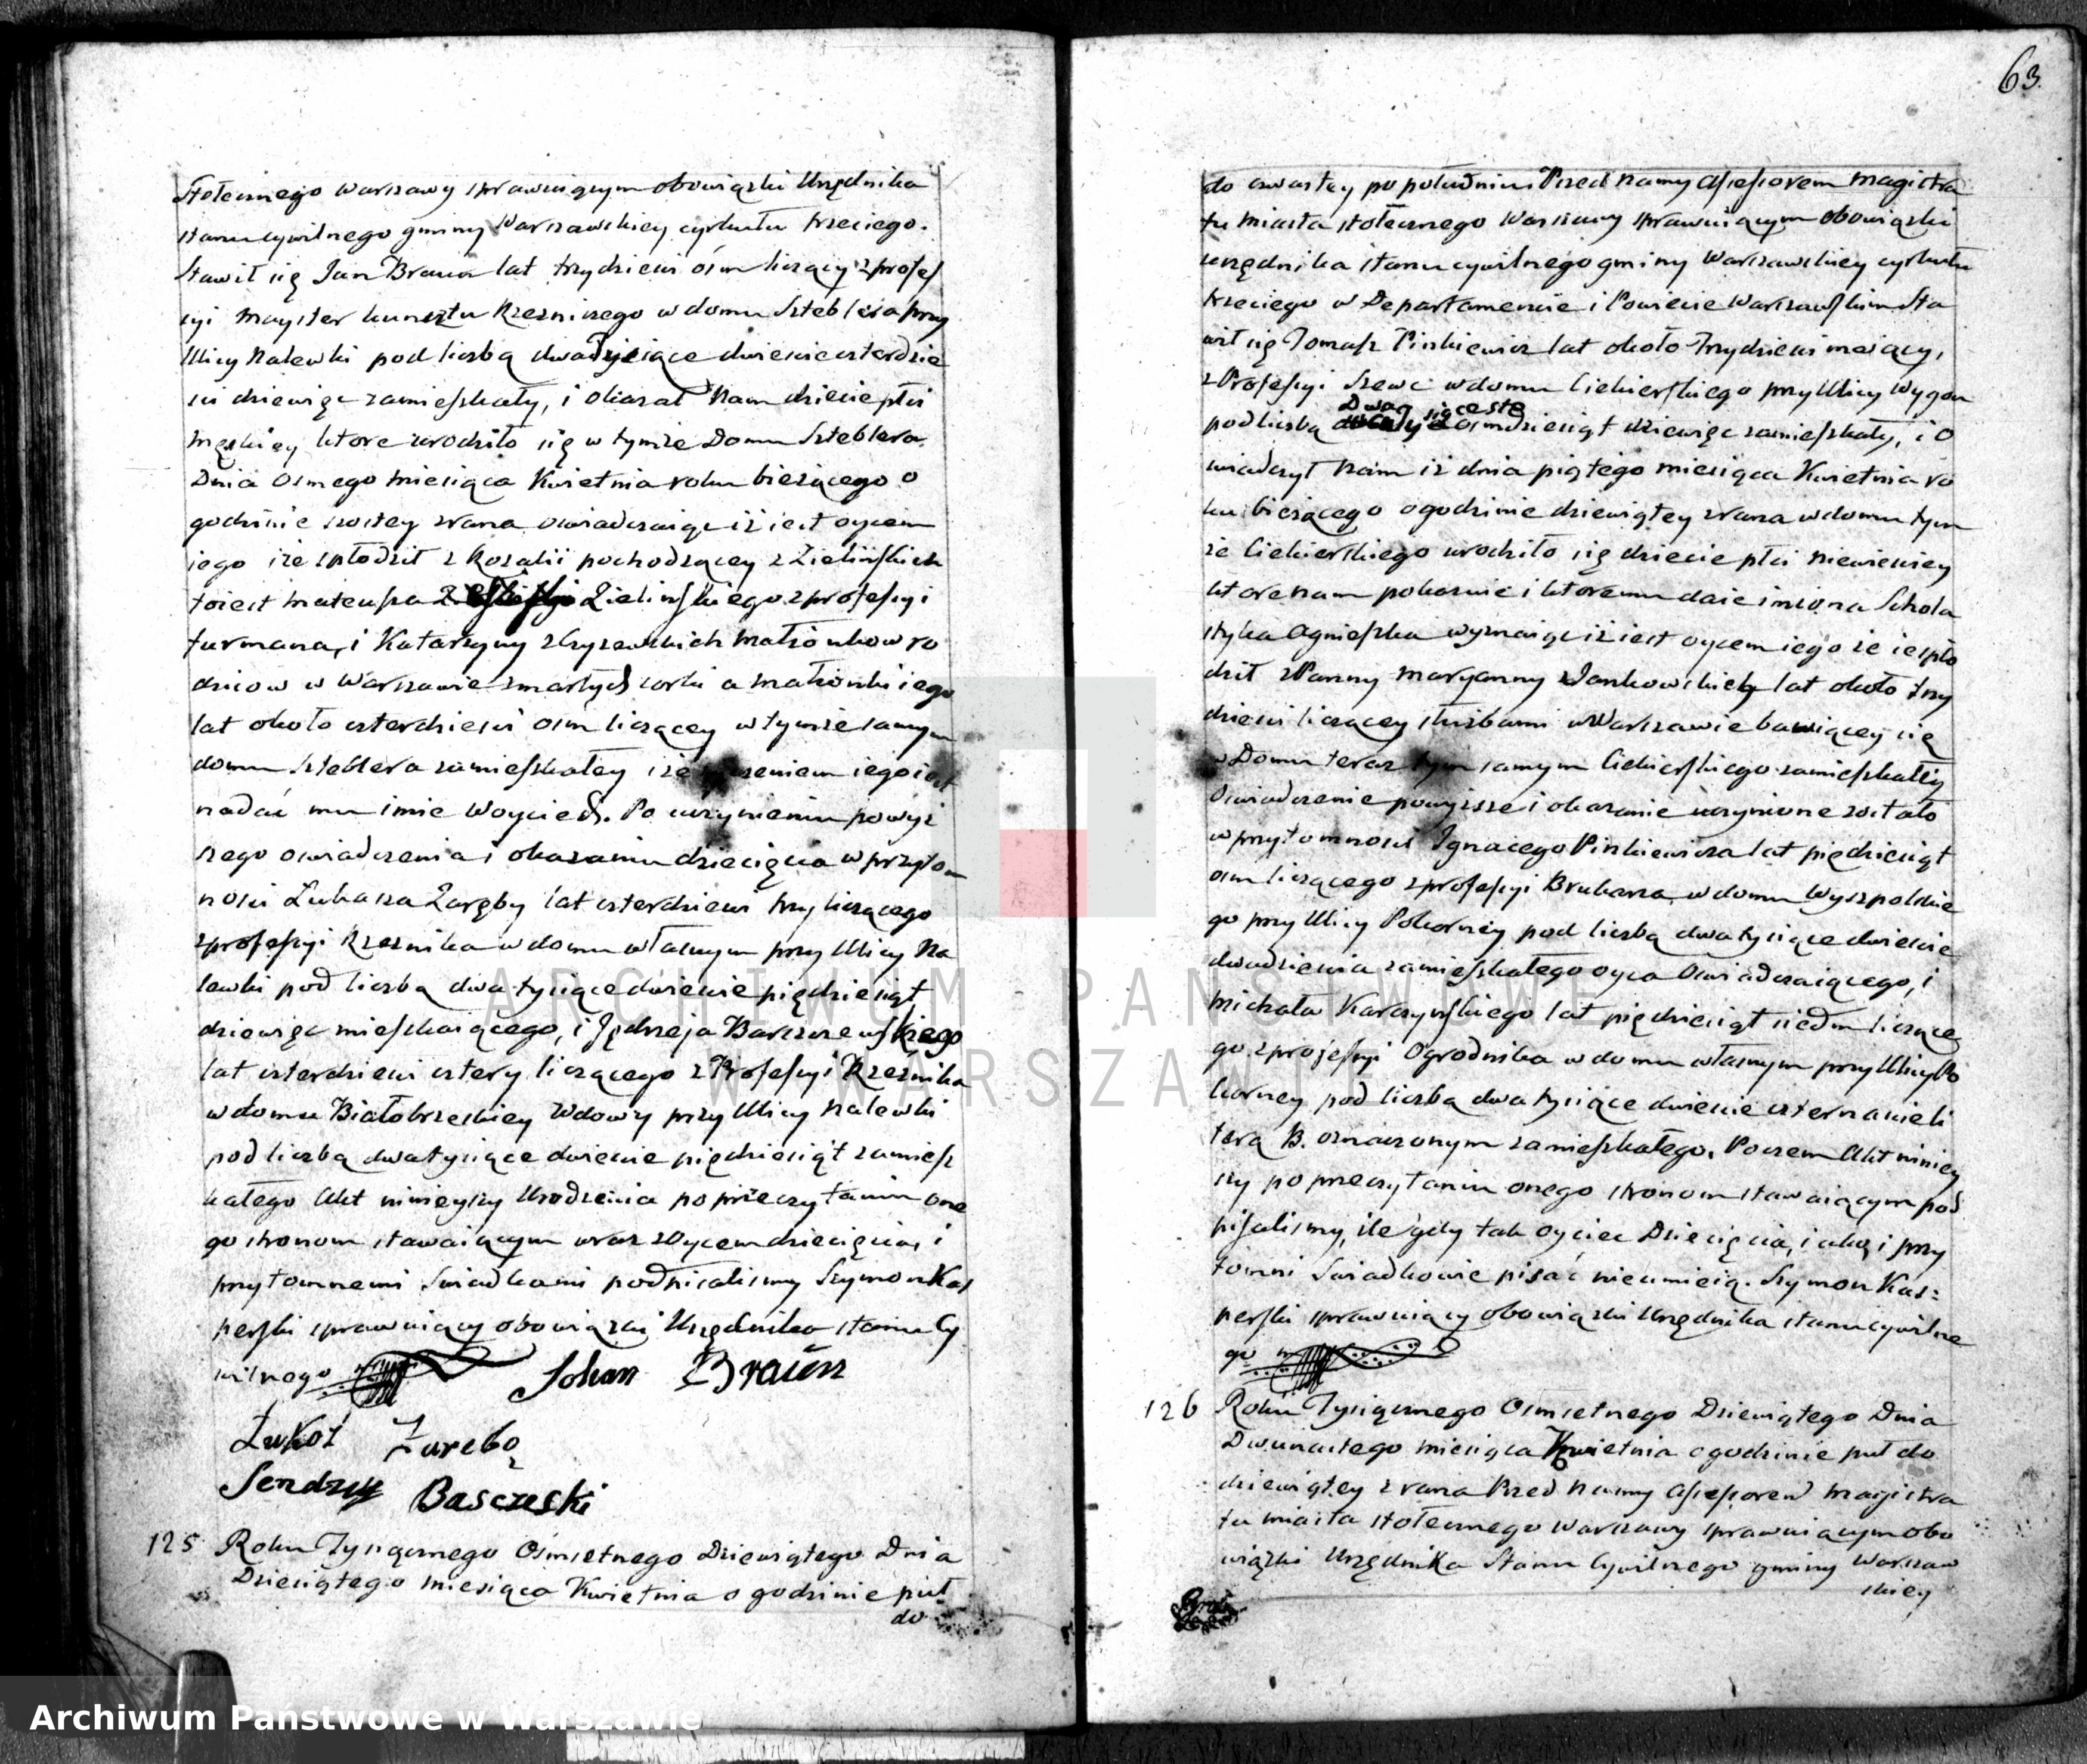 Stołecznego Warszawy sprawuiącym obowiązki Urzędnika
stanu cywilnego gminy Warszawskiey cyrkułu trzeciego.
Stawił się Jan Braun lat trzydzieści ośm liczący z profes
syi mayster kunsztu Rzezniczego w domu Szteblera przy
Ulicy Nalewki pod liczbą dwa Tysiące dwieście czterdzie
ści dziewięć zamieszkały, i okazał Nam dziecie płci
męzkiey ktore urodziło się w tymże Domu Szteblera
Dnia Osmego miesiąca Kwietnia roku bieżącego o
godzinie szostey zrana oswiadczaiąc iż iest oycem
iego iże spłodził z Rozalii pochodzącey z Zielińskich
toiest mateusza Zielinskiego z professyi
furmana, i Katarzyny małżonkow ro
dzicow w Warszawie zmarłych corki a małżonki iego
lat około czterdzieści ośm liczącey w tymże samym
domu Szteblera zamieszkałey iże życzeniem iego iest
nadać mu imie Woyciech. Po uczynieniu powyż
szego oswiadczenia i okazaniu dziecięcia w przyto
ności Łukasza Zaręby lat czterdzieści trzy liczącego
z professyi Rzeznika w domu własnym przy Ulicy Na
lewki pod liczbą dwa tysiące dwieście pięćdziesiąt
dziewięć mieszkaiącego, i Jędrzeja Barszczewskiego
lat czterdzieści cztery liczącego z Professyi Rzeźnika
w domu Białobrzeskiey Wdowy przy Ulicy Nalewki
pod liczbą dwa tysiące dwieście pięćdziesiąt zamiesz
kałego Akt ninieyszy Urodzenia po przeczytaniu one
go stronom stawaiącym wraz z Oycem dziecięcia, i
przytomnemi Swiadkami podpisaliśmy Szymon Kas
perski sprawuiący obowiązki Urzędnika stanu Cy
wilnego
Johan Braun
Łukoż Zarebą
Jendrzy Basczeski
125 Roku Tysiącznego Ośmsetnego Dziewiątego Dnia
Dziesiątego miesiąca Kwietnia o godzinie puł
do
63.
do czwartey po południu Przed Namy Assessorem Magistra
tu Miasta stołecznego Warszawy sprawuiącym obowiązki
urzędnika stanu cywilnego gminy Warszawskiey cyrkułu
trzeciego w Departamencie i Powiecie Warszawskim Sta
wił się Tomasz Pinkiewicz lat około Trzydzieści maiący,
z Professyi Szewc w domu Ciekierskiego przy Ulicy Wygon
Dwa siące sto
pod liczbą osmdziesiąt dziewięć zamieszkały, i O
swiadczył Nam iż dnia piątego miesiąca Kwietnia ro
ku bieżącego o godzinie dziewiątey zrana w domu tym
że Ciekierskiego urodziło się dziecie płci niewieściey
ktore nam pokazuie i ktoremu daie imiona Schola
styka Agnieszka wyznaiąc iż iest oycem iego że ie spło
dził z Panny Maryanny Jankowskich lat około trzy
dzieści liczącey służbami w Warszawie bawiącey się
w Domu teraz tym samym Ciekierskiego zamieszkałey
Oswiadczenie powyższe i okazanie uczynione zostało
w przytomności Ignacego Pinkiewicza lat pięćdziesiąt
ośm liczącego z professyi Brukarza w domu Wyszpolskie
go przy Ulicy Pokorney pod liczbą dwa tysiące dwieście
dwadzieścia zamieszkałego oyca Oswiadczaiącego, i
Michała Karczyńskiego lat pięćdziesiąt siedm liczące
go z professyi Ogrodnika w domu własnym przy Ulicy Po
korney pod liczbą dwa tysiące dwieście czternaście li
terą B. oznaczonym zamieszkałego. Poczem Akt niniey
szy po przeczytaniu onego stronom stawaiącym pod
pisaliśmy, ile gdy tak oyciec Dziecięcia, iakoż i przy
tomni Swiadkowie pisać nieumieią. Szymon Kas:
perski sprawuiący obowiązki Urzędnika stanu cywilne
go
126 Roku Tysiącznego Ośmsetnego Dziewiątego Dnia
Dwunastego miesiąca Kwietnia o godzinie puł do
dziewiątey z rana Przed Namy Assessorem Magistra
tu miasta stołecznego Warszawy sprawuiącym obo
wiązki Urzędnika Stanu Cywilnego gminy Warszaw
skiey
ARCHIWUM PAŃSTWOWE
W WARSZAWIE
Archiwum Państwowe w Warszawie